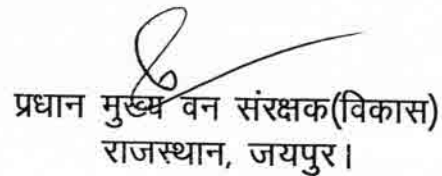 प्रधान मुख्य वन संरक्षक(विकास)
राजस्थान, जयपुर।